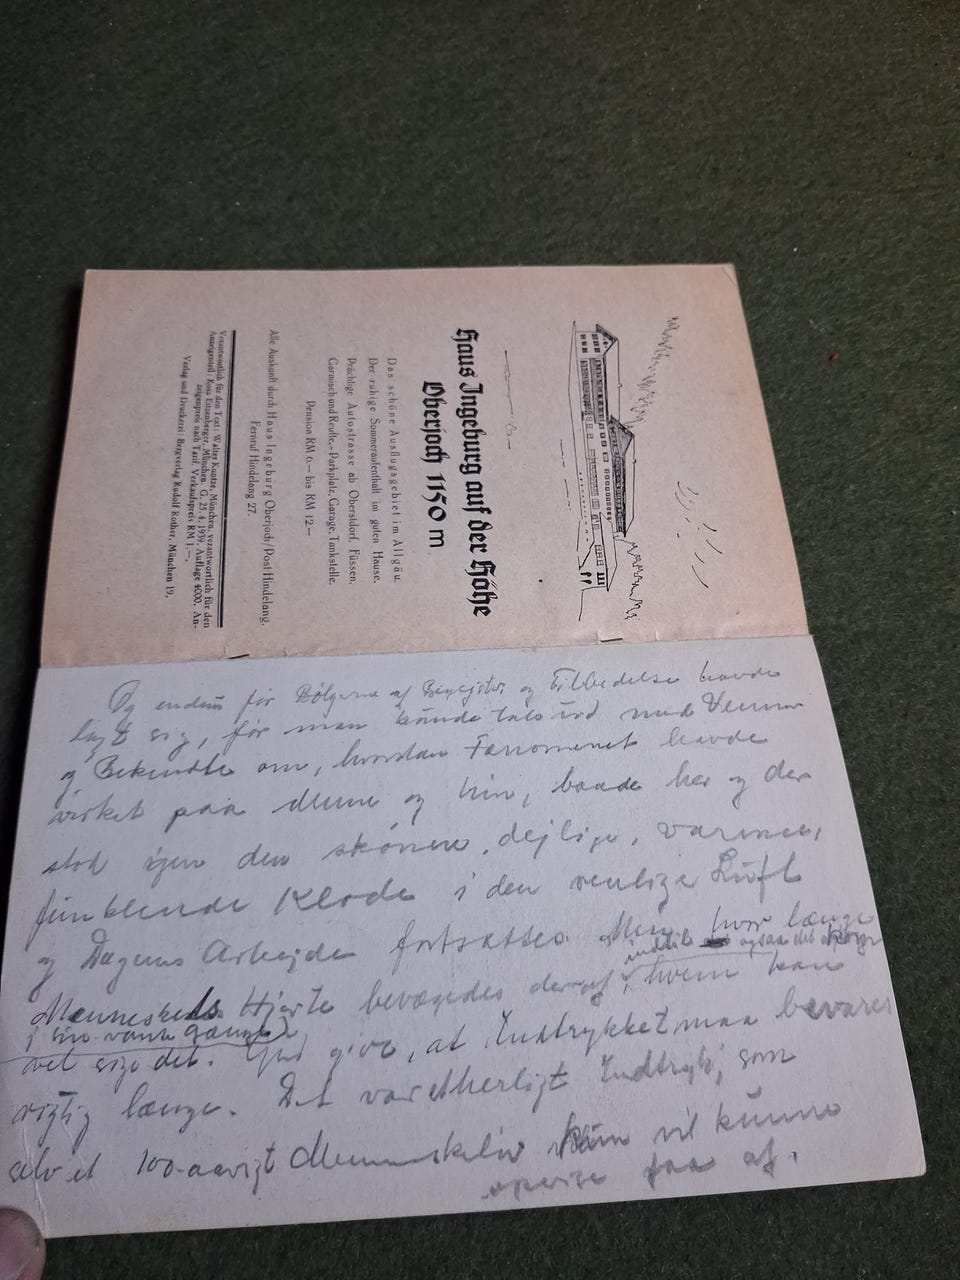 Haus Ingeburg auf der Höhe
Oberjoch 1150 m
Das schöne Ausflugsgebiet im Allgäu.
Der ruhige Sommeraufenthalt im guten Hause.
Prächtige Autostrasse ab Obersldorf, Füssen,
Garmisch und Reutte.- Parkplatz, Garage, Tankstelle.
Pension RM 6.— bis RM 12—
Alle Auskunft durch Haus Ingeburg Oberjoch/Post Hindelang,
Fernruf Hindelang 27.
Verantwortlich für den Text: Walter Kuntze, München, verantwortlich für den
Anzeigenteil: Rosa München. G. 25. 4. 1939. Auflage 4000. An-
zeigenpreis nach Tarif. Verkaufspreis RM 1.—.
Verlag und Druckerei: Bergverlag Rudolf Rother, München 19.
Og endnu før Bølgerne af og Tilbedelse havde
lagt sig, før man kunde tale ud med Venner
og Bekendte om, hvordan Fænomenet havde
virket paa denne og hin, baade her og der
stod igen den skønne, dejlige, varme,
funklende Klode i den venlige Luft
og Dagens Arbejde fortsattes. Men hvor længe
indtil ogsaa det
Menneskets Hjerte bevægedes deraf, hvem kan
i sin vante Gænge?
vel sige det. Gud give, at Indtrykket maa bevares
rigtig længe. Det var et herligt Indtryk, som
selv et 100-aarigt Menneskeliv vil kunne
paa af.